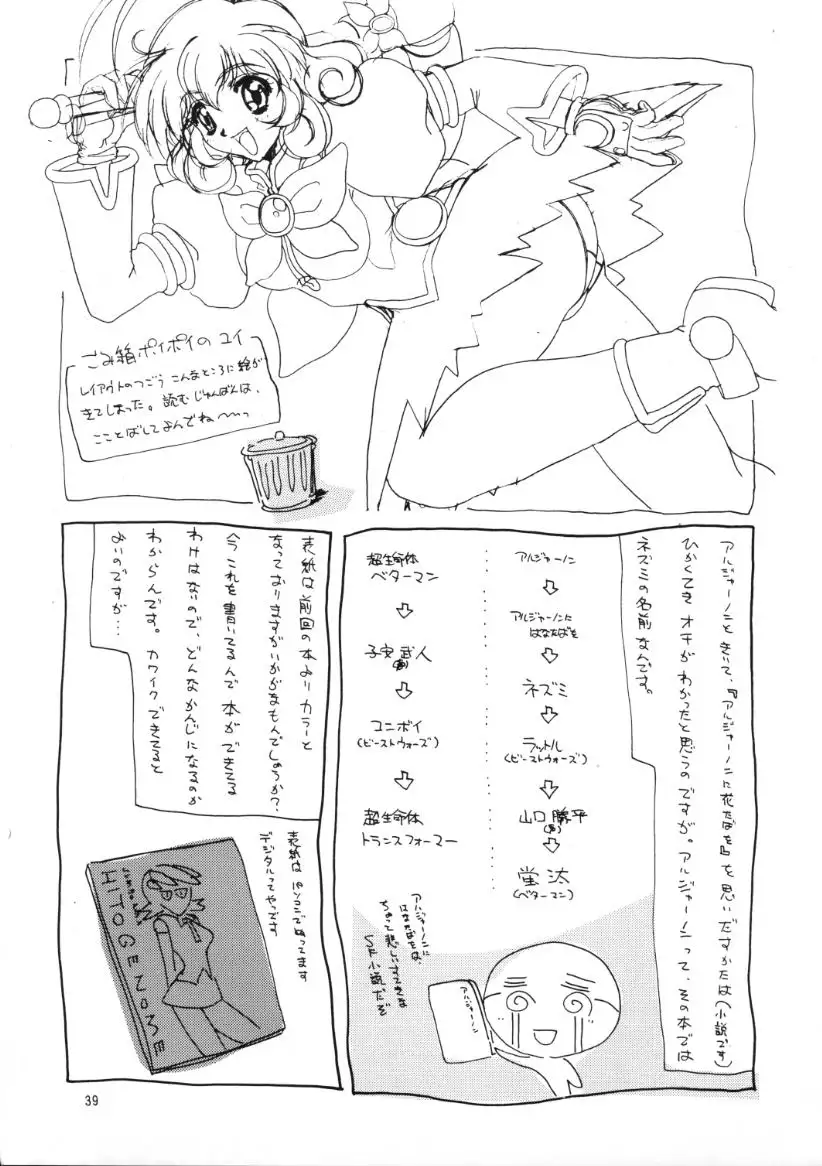 ごみ箱ポイポイのユイ
レイアウトのつごう こんなところに絵が
きてしまった。読むじゅんばんは、
こことばしてよんでね〜っ
アルジャーノンときいて、『アルジャーノンに花たばを』を思いだすかたは(小説です)
ひかくてき オチが わかったと思うのですが。アルジャーノンって、その本では
ネズミの名前なんです。
アルジャーノン
⇩
アルジャーノンに
はなたばを
⇩
ネズミ
⇩
ラットル
(ビーストウォーズ)
⇩
山口 勝平
⇩
蛍汰
(ベターマン)
超生命体
ベターマン
⇩
子安 武人
⇩
コンボイ
(ビーストウォーズ)
⇩
超生命体
トランスフォーマー
アルジャーノンに
はなたばをは、
ちょっと悲しいすてきな
SF小説だぞ
アルジャーノン
表紙は前回の本よりカラーと
なっておりますがいかがなもんでしょうか?
今これを書いてるんで本ができてる
わけはないので、どんなかんじになるのか
わからんです。カワイクできてると
よいのですが…
表紙はパソコンでぬってます
デジタルってやつです
HITOGENOME
39